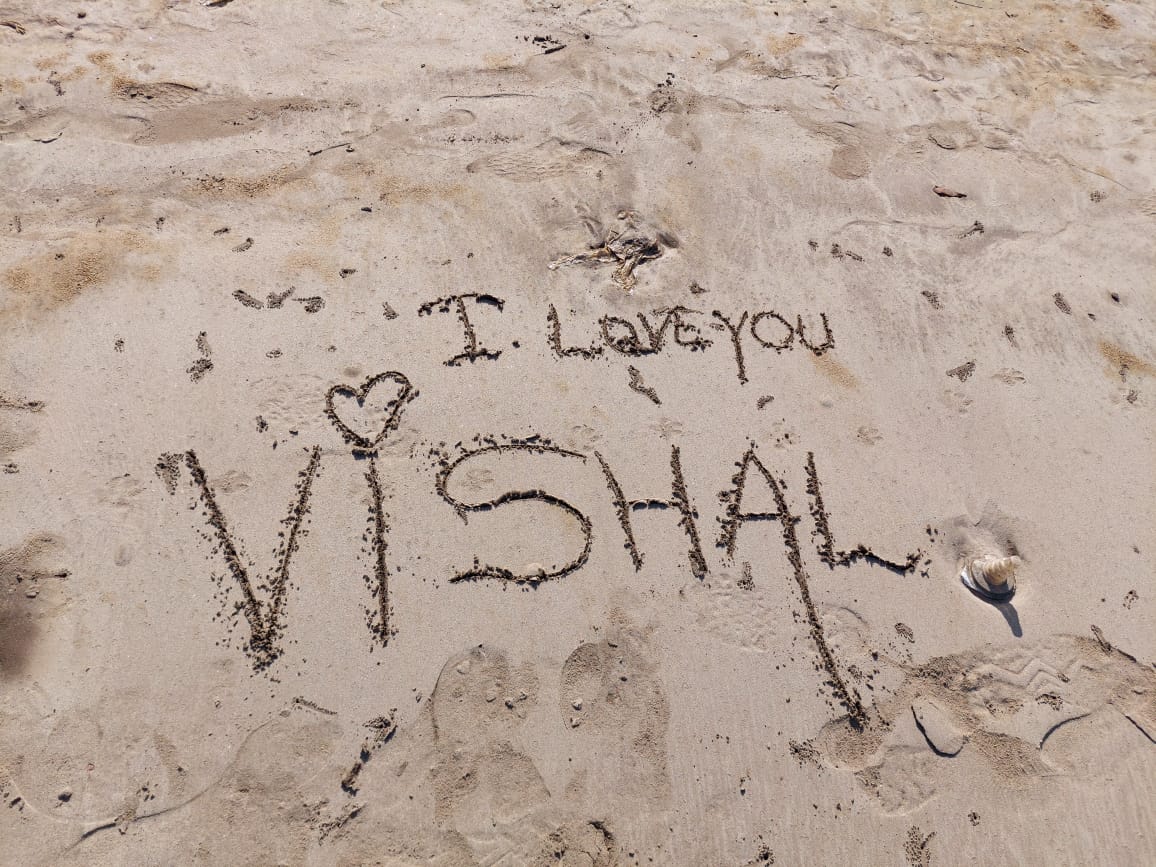 I LOVE YOU
ViSHAL